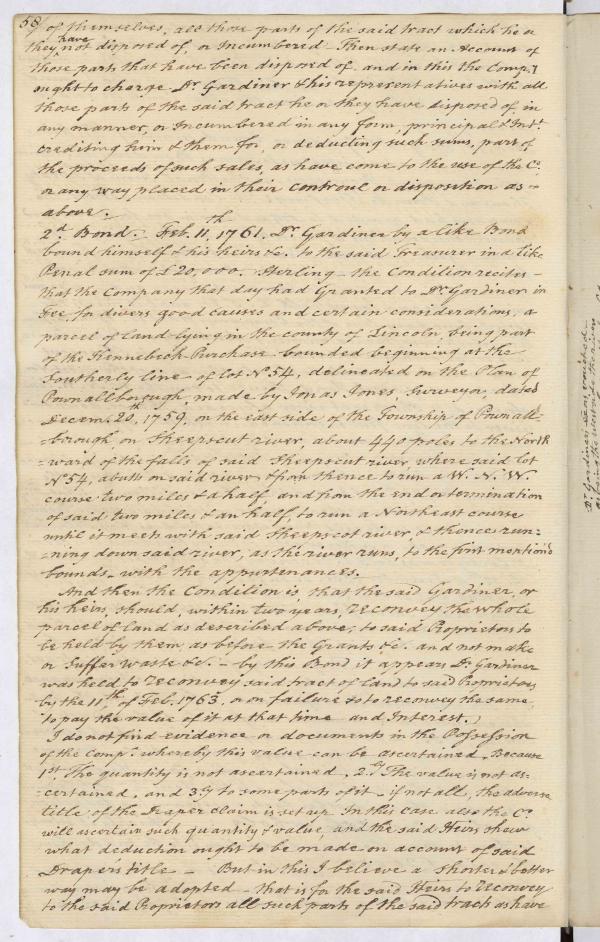 58/ of themselves, all those parts of the said tract which he or
they have not disposed of, or Incumbered - Then state an Account of
those parts that have been disposed of and in this the Comp.y
ought to charge Dr. Gardiner & his representatives with all
those parts of the said tract he or they have disposed of in
any manner, or Incumbered in any form, principal & Int.t
crediting him & them for, or deducting such sums, part of
the proceeds of such sales, as have come to the use of the Co.
or any way placed in their controul or disposition as -
above.
2.d Bond. - Feb. 11.th 1761. Dr. Gardiner by a like Bond
bound himself & his heirs &c. to the said Treasurer in a like
Penal sum of £20,000. Sterling - the Condition recites -
that the Company that day had Granted to Dr. Gardiner in
Fee, for divers good causes and certain considerations, a
parcel of land lying in the county of Lincoln, being part
of the Kennebeck Purchase bounded beginning at the
Southerly line of lot No 54, delineated on the Plan of
Pownallborough, made by Jonas Jones, Surveyor, dated
Decem. 1759, on the east side of the Township of Pownall-
-brough on Sheepscut river, about 440 poles to the North
=ward of the falls of said Sheepscut river, where said lot
No 54, abutts on said river & from thence to run a W. N. W.
course two miles & a half, and from the end or termination
of said two miles & an half, to run a Northeast course
until it meets with said Sheepscot river, & thence run=
=ning down said river, as the river runs, to the first mention'd
bounds - with the appurtenances.
And then the Condition is, that the said Gardiner, or
his heirs, should, within two years, reconvey the whole
parcel of land as described above, to said Proprietors to
be held by them, as before the Grants &c. and not make
or Suffer waste &c. - by this Bond it appears Dr. Gardiner
was held to reconvey said tract of land to said Proprietors
by the 11th of Feb. 1763, or on failure so to reconvey the same
to pay the value of it at that time and Interest.
I do not find evidence or documents in the Possession
of the Comp.y whereby this value can be ascertained. Because
1st. The quantity is not ascertained. 2.dly The value is not as-
=certained. and 3.ly to some parts of it - if not all, the adverse
title of the Draper claim is set up. In this case also the Co.
will ascertain such quantity & value, and the said Heirs shew
what deduction ought to be made on account of said
Draper's title - But in this I believe a shorter & better
way may be adopted - that is for the said Heirs to reconvey
to the said Proprietors all such parts of the said tract as have
Dr. Gardiner